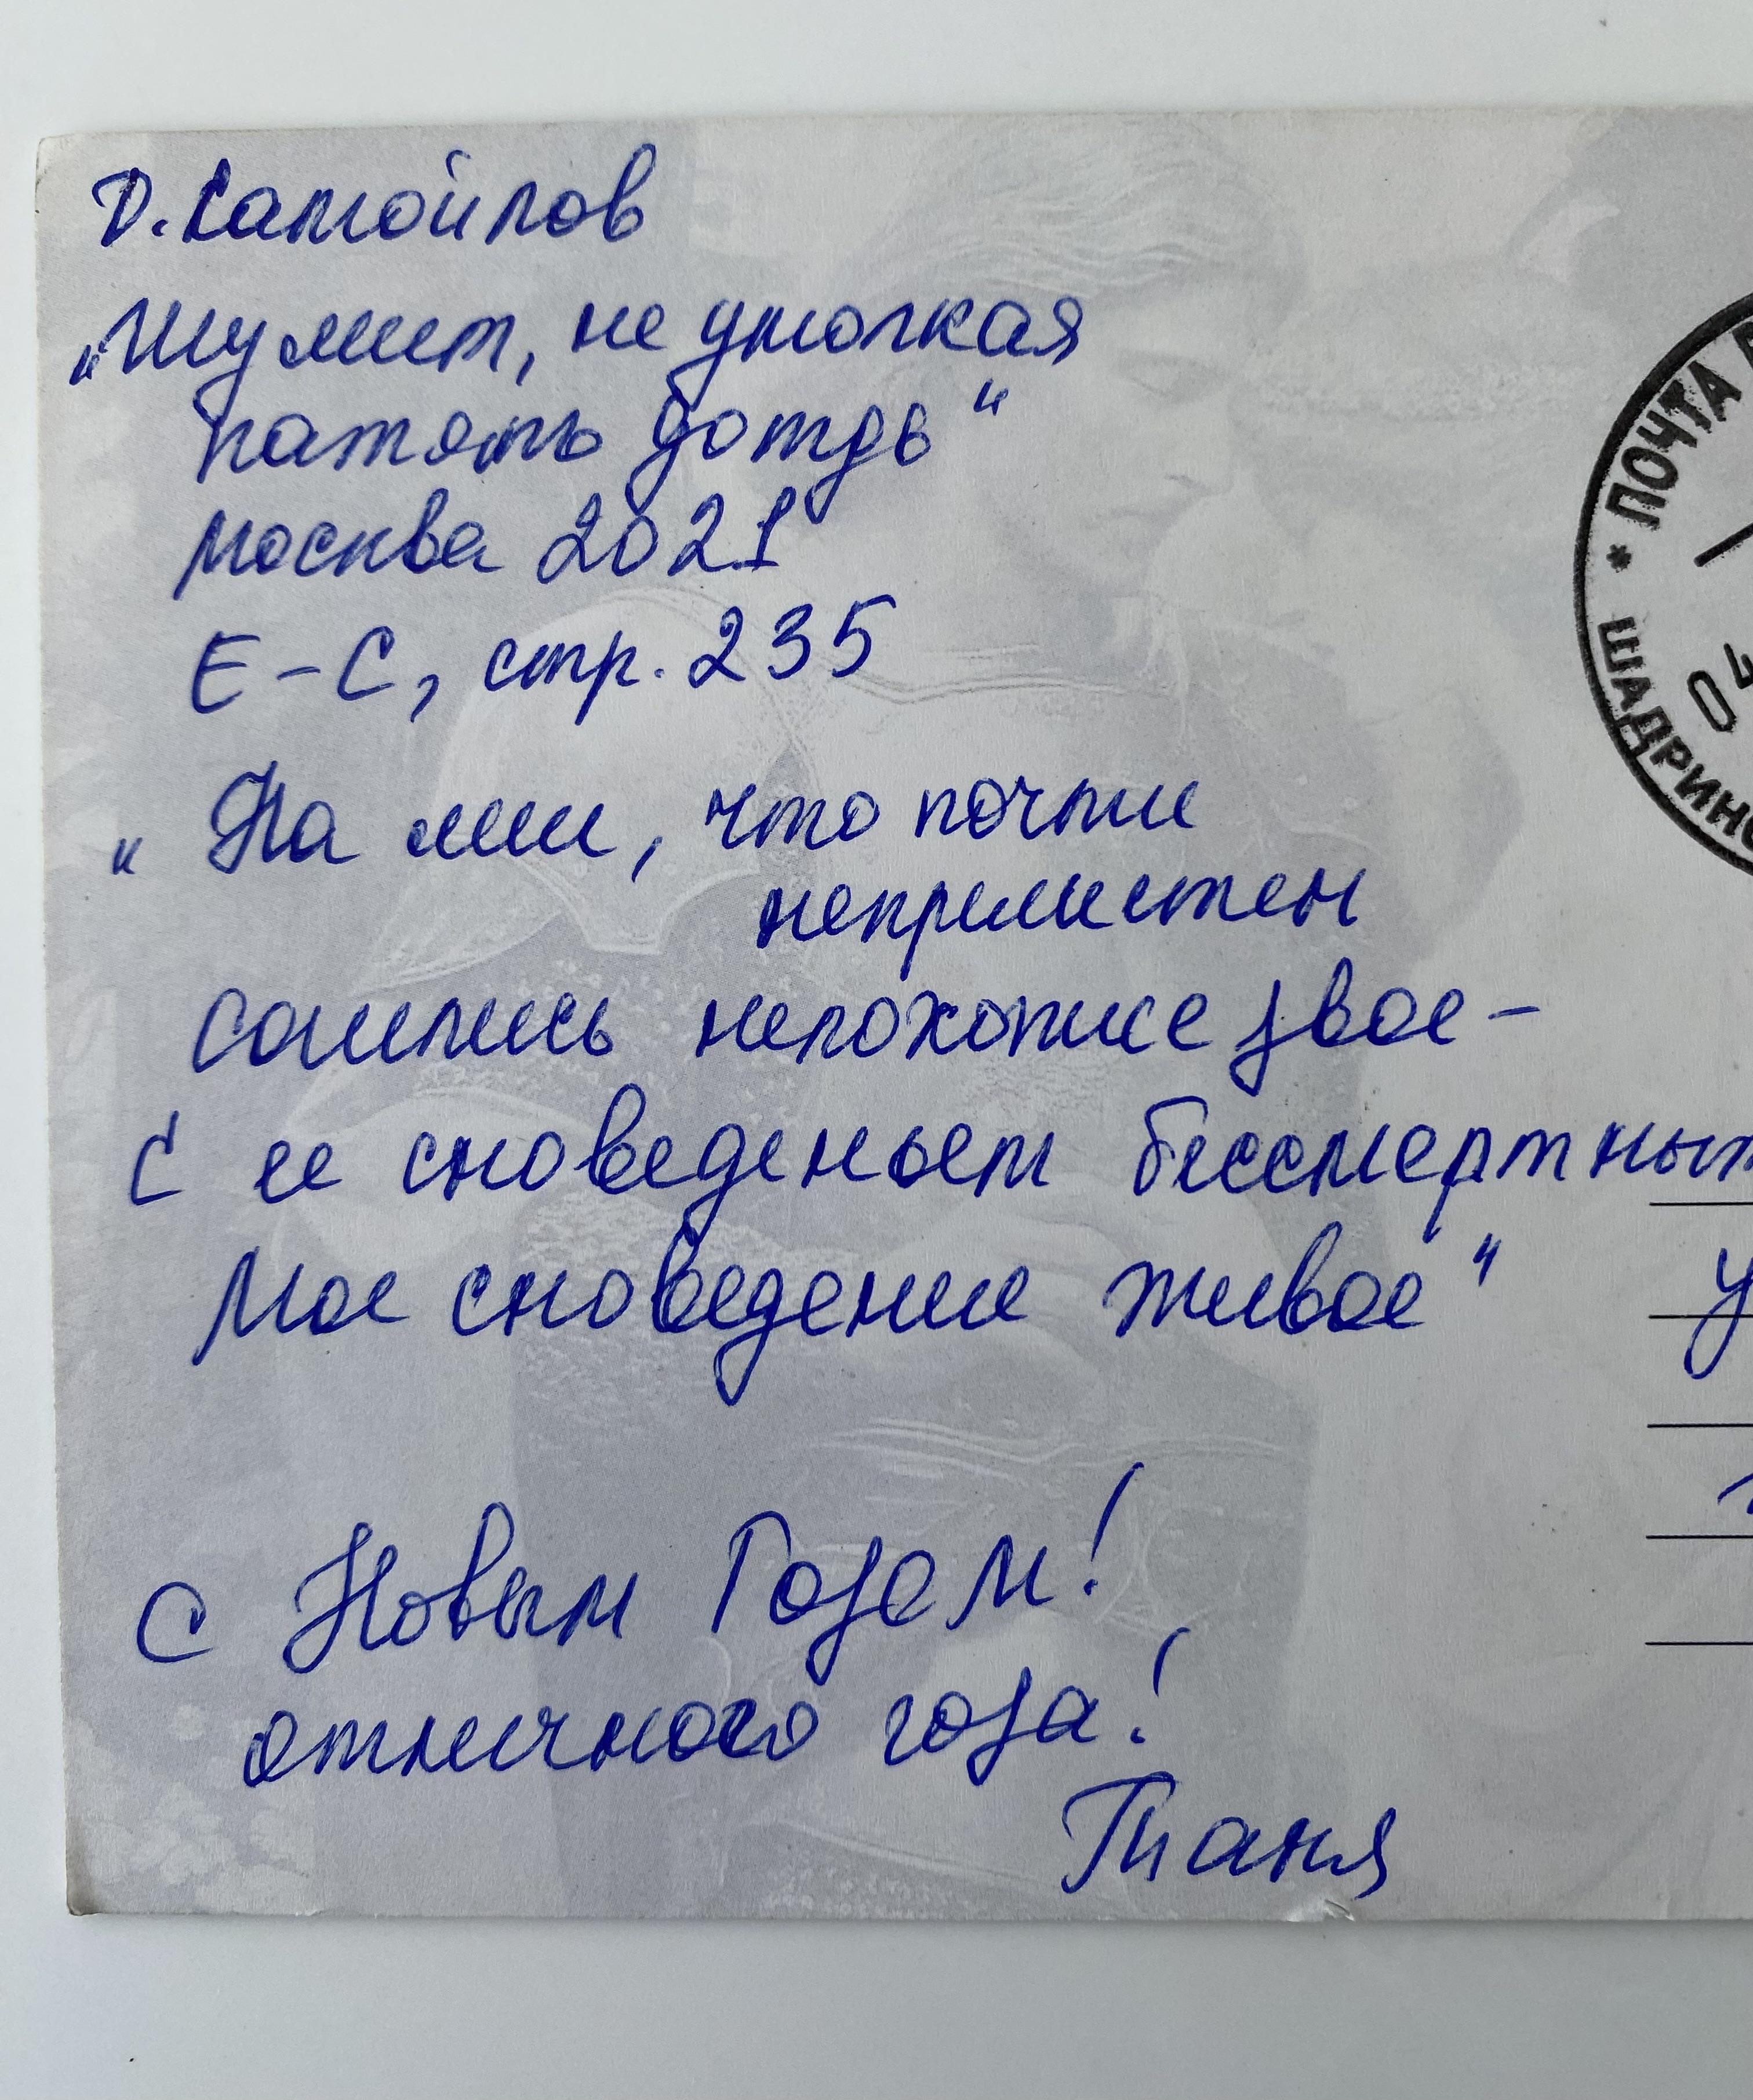 Д. Самойлов
„Шумит, не умолкая
память дождь“
Москва 2021
Е-С, стр. 235
„На миг, что почти
неприметен
Сошлись непохожие двое –
С ее сновиденьем бессмертным
Мое сновидение живое“
С Новым Годом!
Отличного года!
Таня
ПОЧТА
ШАДРИН
04